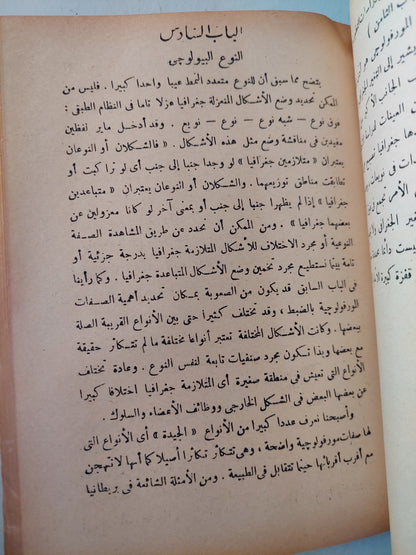 الباب السادس
النوع البيولوجى
يتضح مما سبق أن للنوع متعدد النمط عيبا واحدا كبيرا . فليس من
الممكن تحديد وضع الأشكال المنعزلة جغرافيا عزلا تاما فى النظام الطبقى :
فوق نوع – شبه نوع – نوع – نويع . وقد أدخل ماير لفظين
مفيدين فى مناقشة وضع مثل هذه الأشكال . « فالشكلان أو النوعان
يعتبران « متلازمين جغرافيا » لو وجدا جنبا إلى جنب أى لو تراكبت أو
تطابقت مناطق توزيعهما . والشكلان أو النوعان يعتبران « متباعدين
جغرافيا » إذا لم يظهرا جنبا إلى جنب أو بمعنى آخر لو كانا معزولين عن
بعضهما جغرافيا » . ومن الممكن أن نحدد عن طريق المشاهدة الصفة
النوعية أو مجرد الاختلاف للأشكال المتلازمة جغرافيا بدرجة جزئية أو
تامة بينما نستطيع مجرد تخمين وضع الأشكال المتباعدة جغرافيا . وكما رأينا
فى الباب السابق قد يكون من الصعوبة بمكان تحديد أهمية الصفات
المورفولوجية بالضبط ، وقد تختلف كثيرا حتى بين الأنواع القريبة الصلة
ببعضها . وكانت الأشكال المختلفة تعتبر أنواعا مختلفة ما لم تتكاثر حقيقة
مع بعضها وبذا تكون مجرد صنفيات تابعة لنفس النوع . وعادة تختلف
الأنواع التى تعيش فى منطقة صغيرة أى المتلازمة جغرافيا اختلافا كبيرا
عن بعضها البعض فى الشكل الخارجى ووظائف الأعضاء والسلوك .
وأصبحنا نعرف عددا كبيرا من الأنواع « الجيدة » أى الأنواع التى
لها صفات مورفولوجية واضحة ، وهى تتكاثر تكاثرا أصيلا كما أنها لا تتهجن
مع أقرب أقربائها حينما تتقابل فى الطبيعة . ومن الأمثلة الشائعة فى بريطانيا